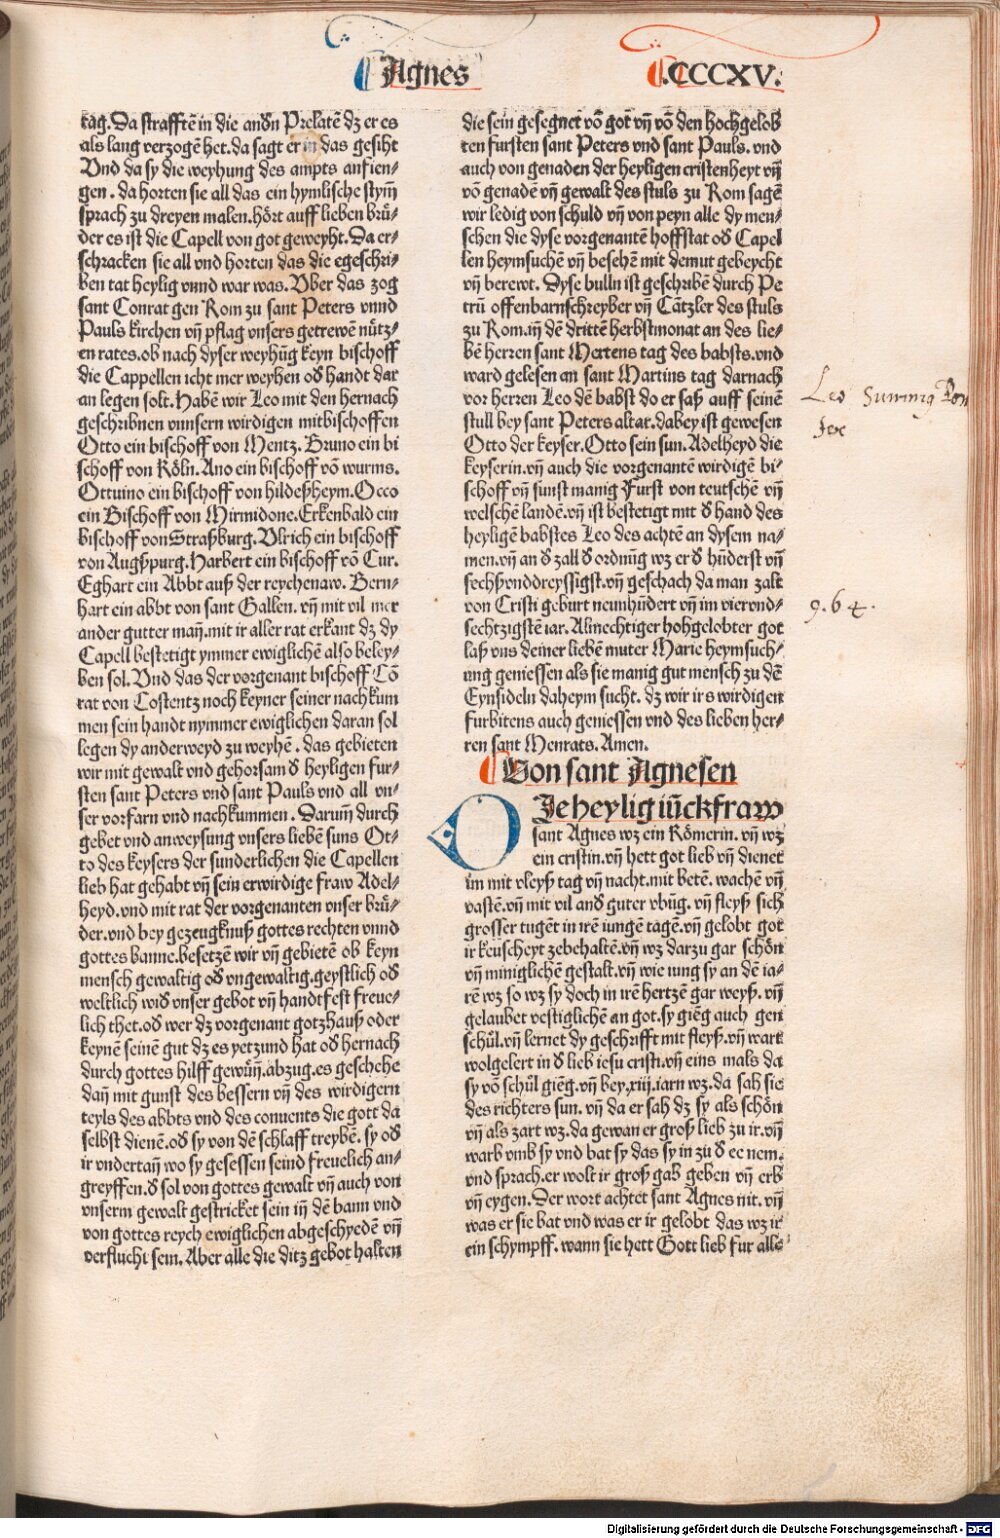 Agnes
.CCCXV.
tag. Da strafftē in die andn̄ Prelatē dz er es
als lang verzogē het. da sagt er in das gesiht
Vnd da sy die weyhung des ampts anfien-
gen. da horten sie all das ein hymlische stym̄
sprach zu dreyen malen. hört auff lieben brü-
der es ist die Capell von got geweyht. Da er-
schracken sie all vnd horten das die egeschri-
ben tat heylig vnnd war was. Vber das zog
sant Conrat gen Rom zu sant Peters vnnd
Pauls kirchen vn̄ pflag vnsers getrewē nütz-
en rates. ob nach dyser weyhūg keyn bischoff
die Cappellen icht mer weyhen od̄ handt dar
an legen solt. Habē wir Leo mit den hernach
geschribnen vnnsern wirdigen mitbischoffen
Otto ein bischoff von Mentz. Bruno ein bi
schoff von Köln. Ano ein bischoff vō wurms.
Ottuino ein bischoff von hildeßheym. Occo
ein Bischoff von Mirmidone. Erkenbald ein
bischoff von Straßburg. Vlrich ein bischoff
von Augspurg. Harbert ein bischoff vō Cur.
Eghart ein Abbt auß der reychenaw. Bern-
hart ein abbt von sant Gallen. vn̄ mit vil mer
ander gutter man̄. mit ir aller rat erkant dz dy
Capell bestetigt ymmer ewiglichē also beley-
ben sol. Vnd das der vorgenant bischoff Cō
rat von Costentz noch keyner seiner nachkum
men sein handt nymmer ewiglichen daran sol
legen dy anderweyd zu weyhē. das gebieten
wir mit gewalt vnd gehorsam d̄ heyligen fur-
sten sant Peters vnd sant Pauls vnd all vn-
ser vorfarn vnd nachkummen. Darum̄ durch
gebet vnd anweysung vnsers liebē suns Ot-
to des keysers der sunderlichen die Capellen
lieb hat gehabt vn̄ sein erwirdige fraw Adel-
heyd. vnd mit rat der vorgenanten vnser brü-
der. vnd bey gezeugknuß gottes rechten vnnd
gottes banne. besetzē wir vn̄ gebietē ob keyn
mensch gewaltig od̄ vngewaltig. geystlich od̄
weltlich wid̄ vnser gebot vn̄ handtfest freue-
lich thet. od̄ wer dz vorgenant gotzhauß oder
keynē seinē gut dz es yetzund hat od̄ hernach
durch gottes hilff gewün̄. abzug. es geschehe
dan̄ mit gunst des bessern vn̄ des wirdigern
teyls des abbts vnd des conuents die gott da
selbst dienē. od̄ sy von dē schlaff treybē. sy od̄
ir vndertan̄ wo sy gesessen seind freuelich an-
greyffen. d̄ sol von gottes gewalt vn̄ auch von
vnserm gewalt gestricket sein in̄ dē bann vnd
von gottes reych ewiglichen abgeschyedē vn̄
verflucht sein. Aber alle die ditz gebot halten
die sein gesegnet vō got vn̄ vō den hochgelob
ten fursten sant Peters vnd sant Pauls. vnd
auch von genaden der heyligen cristenheyt vn̄
vō genadē vn̄ gewalt des stuls zu Rom sagē
wir ledig von schuld vn̄ von peyn alle dy men-
schen die dyse vorgenantē hoffstat od̄ Capel
len heymsuchē vn̄ besehē mit demut gebeycht
vn̄ berewt. Dyse bulln ist geschribē durch Pe
trū offenbarnschreyber vn̄ Cātzler des stuls
zu Rom. in̄ dē drittē herbstmonat an des lie-
bē herren sant Mertens tag des babsts. vnd
ward gelesen an sant Martins tag darnach
vor herren Leo dē babst do er saß auff seinē
stull bey sant Peters altar. dabey ist gewesen
Otto der keyser. Otto sein sun. Adelheyd die
keyserin. vn̄ auch die vorgenantē wirdigē bi-
schoff vn̄ sunst manig Furst von teutschē vn̄
welschē landē. vn̄ ist bestetigt mit d̄ hand des
heyligē babstes Leo des achtē an dysem na-
men. vn̄ an d̄ zall d̄ ordnūg wz er d̄ hūderst vn̄
sechßvnddreyssigst. vn̄ geschach da man zalt
von Cristi geburt neunhūdert vn̄ im vierond-
sechtzigstē iar. Almechtiger hohgelobter got
laß vns deiner liebē muter Marie heymsuch-
ung geniessen als sie manig gut mensch zu dē
Eynsideln daheym sucht. dz wir irs wirdigen
furbitens auch geniessen vnd des lieben her-
ren sant Menrats. Amen.
Leo Summg Pon
fex
9.64.
Von sant Agnesen
DJe heylig iūckfraw
sant Agnes wz ein Römerin. vn̄ wz
ein cristin. vn̄ hett got lieb vn̄ dienet
im mit vleyß tag vn̄ nacht. mit betē. wachē vn̄
vastē. vn̄ mit vil and̄ guter vbūg. vn̄ fleyß sich
grosser tugēt in irē iungē tagē. vn̄ gelobt got
ir keuscheyt zebehaltē. vn̄ wz darzu gar schön
vn̄ miniglichē gestalt. vn̄ wie iung sy an dē ia-
rē wz so wz sy doch in irē hertzē gar weyß. vn̄
gelaubet vestiglichē an got. sy giēg auch gen
schůl. vn̄ lernet dy geschrifft mit fleyß. vn̄ wart
wolgelert in d̄ lieb iesu cristi. vn̄ eins mals da
sy vō schůl giēg. vn̄ bey. xiij. iarn wz. da sah sie
des richters sun. vn̄ da er sah dz sy als schön
vn̄ als zart wz. da gewan er groß lieb zu ir. vn̄
warb vmb sy vnd bat sy das sy in zu d̄ ee nem.
vnd sprach. er wolt ir groß gab geben vn̄ erb
vn̄ eygen. Der wort achtet sant Agnes nit. vn̄
was er sie bat vnd was er ir gelobt das wz ir
ein schympff. wann sie hett Gott lieb fur alle
Digitalisierung gefördert durch die Deutsche Forschungsgemeinschaft - DFG